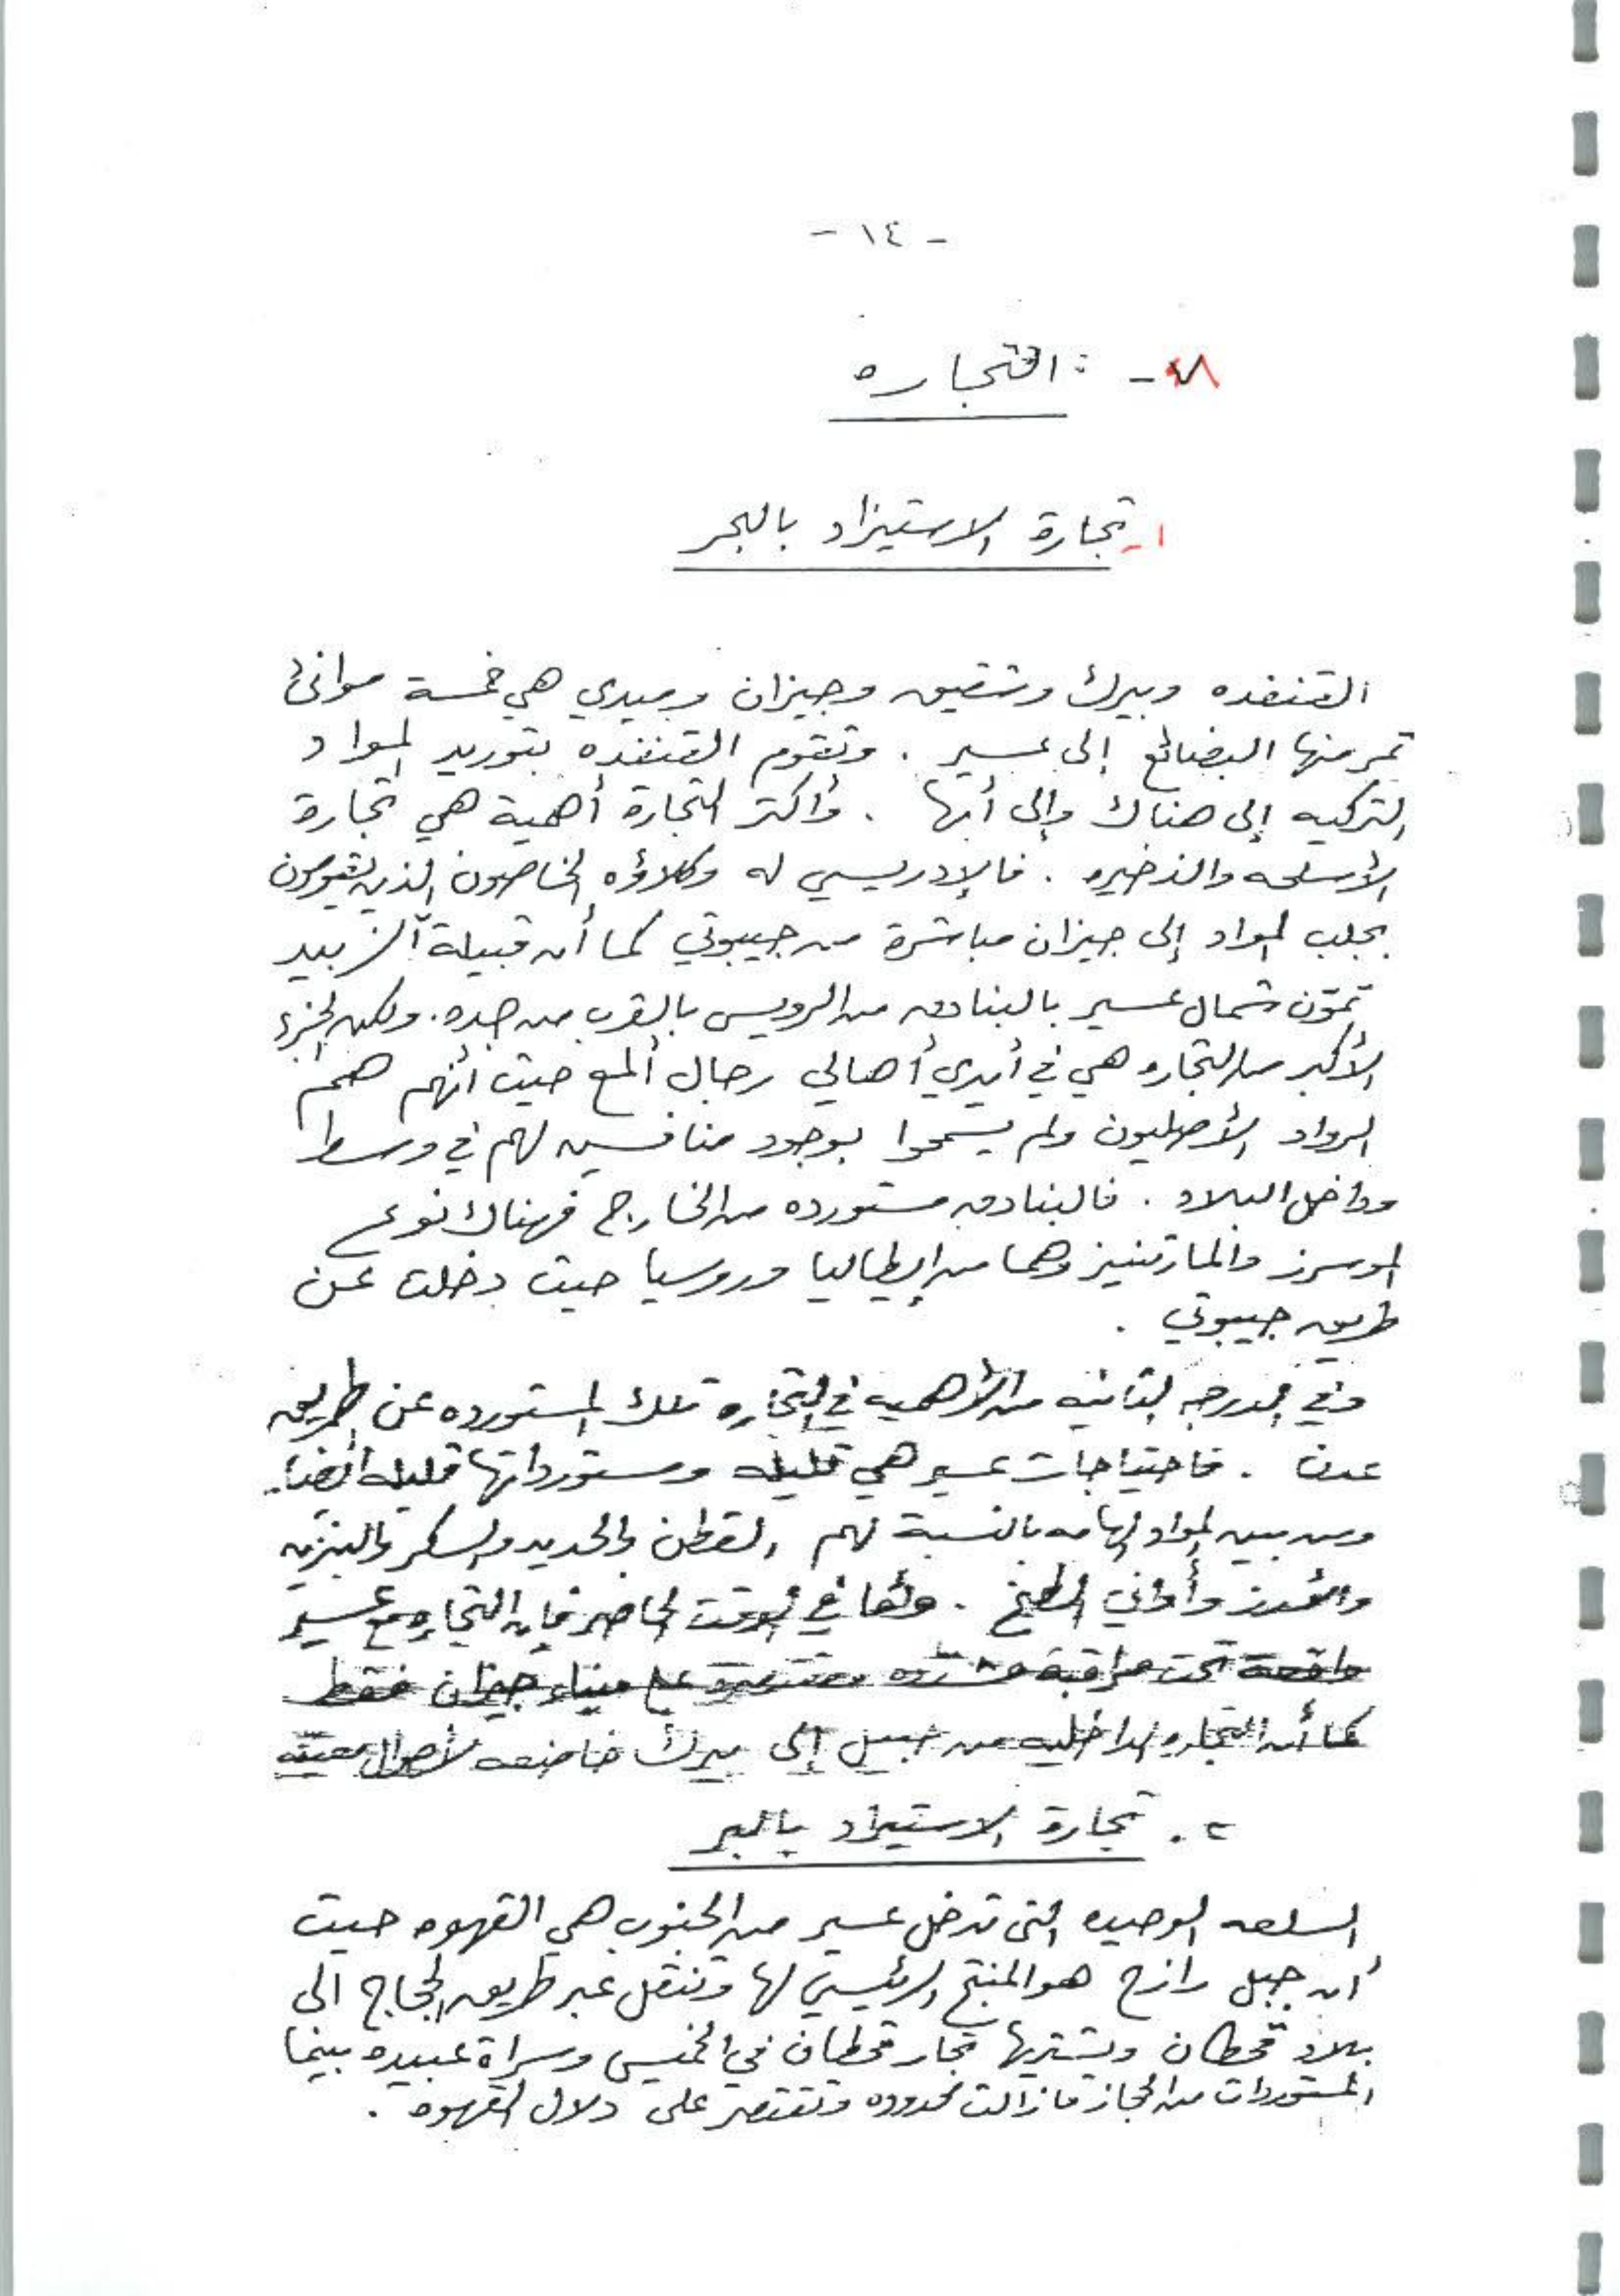 - ١٤ -
٨- : التجاره
١- تجارة الاستيراد بالبحر
القنفده وبيرك وشقيق وجيزان وميدي هي خمسة موانئ
تمر منها البضائع إلى عسير . وتقوم القنفده بتوريد المواد
التركيه إلى هناك وإلى أبها . وأكثر التجارة أهمية هي تجارة
الأسلحه والذخيره . فالإدريسي له وكلاؤه الخاصون الذين يقومون
بجلب المواد إلى جيزان مباشرة من جيبوتي كما أن قبيلة آل زبيد
تموّن شمال عسير بالبنادق من الرويس بالقرب من جده . ولكن الجزء
الأكبر من التجاره هي في أيدي أهالي رجال ألمع حيث أنهم هم
الرواد الأصليون ولم يسمحوا بوجود منافسين لهم في وسط
وداخل البلاد . فالبنادق مستورده من الخارج فهناك نوع
الموسرز والمارتينيز وهما من إيطاليا وروسيا حيث دخلت عن
طريق جيبوتي .
وفي الدرجه الثانيه من الأهميه في التجاره تلك المستورده عن طريق
عدن . فاحتياجات عسير هي قليله ومستورداتها قليله أيضا .
ومن بين المواد الهامه بالنسبة لهم القطن والحديد والسكر والبنزين
والأرز وأواني الطبخ . وأما في الوقت الحاضر فإن التجاره مع عسير
واقعة تحت مراقبة مشدده مقتصره على ميناء جيزان فقط
كما أن التجاره الداخليه من جبيل إلى بيرك خاضعه لأصول معينه
٢ . تجارة الاستيراد بالبر
السلعه الوحيده التى تدخل عسير من الجنوب هي القهوه حيث
أن جبل رازح هو المنتج الرئيسي لها وتنقل عبر طريق الحجاج الى
بلاد قحطان ويشتريها تجار قحطان في الخميس وسراة عبيده بينما
المستوردات من الحجاز مازالت محدوده وتقتصر على دلال القهوه .